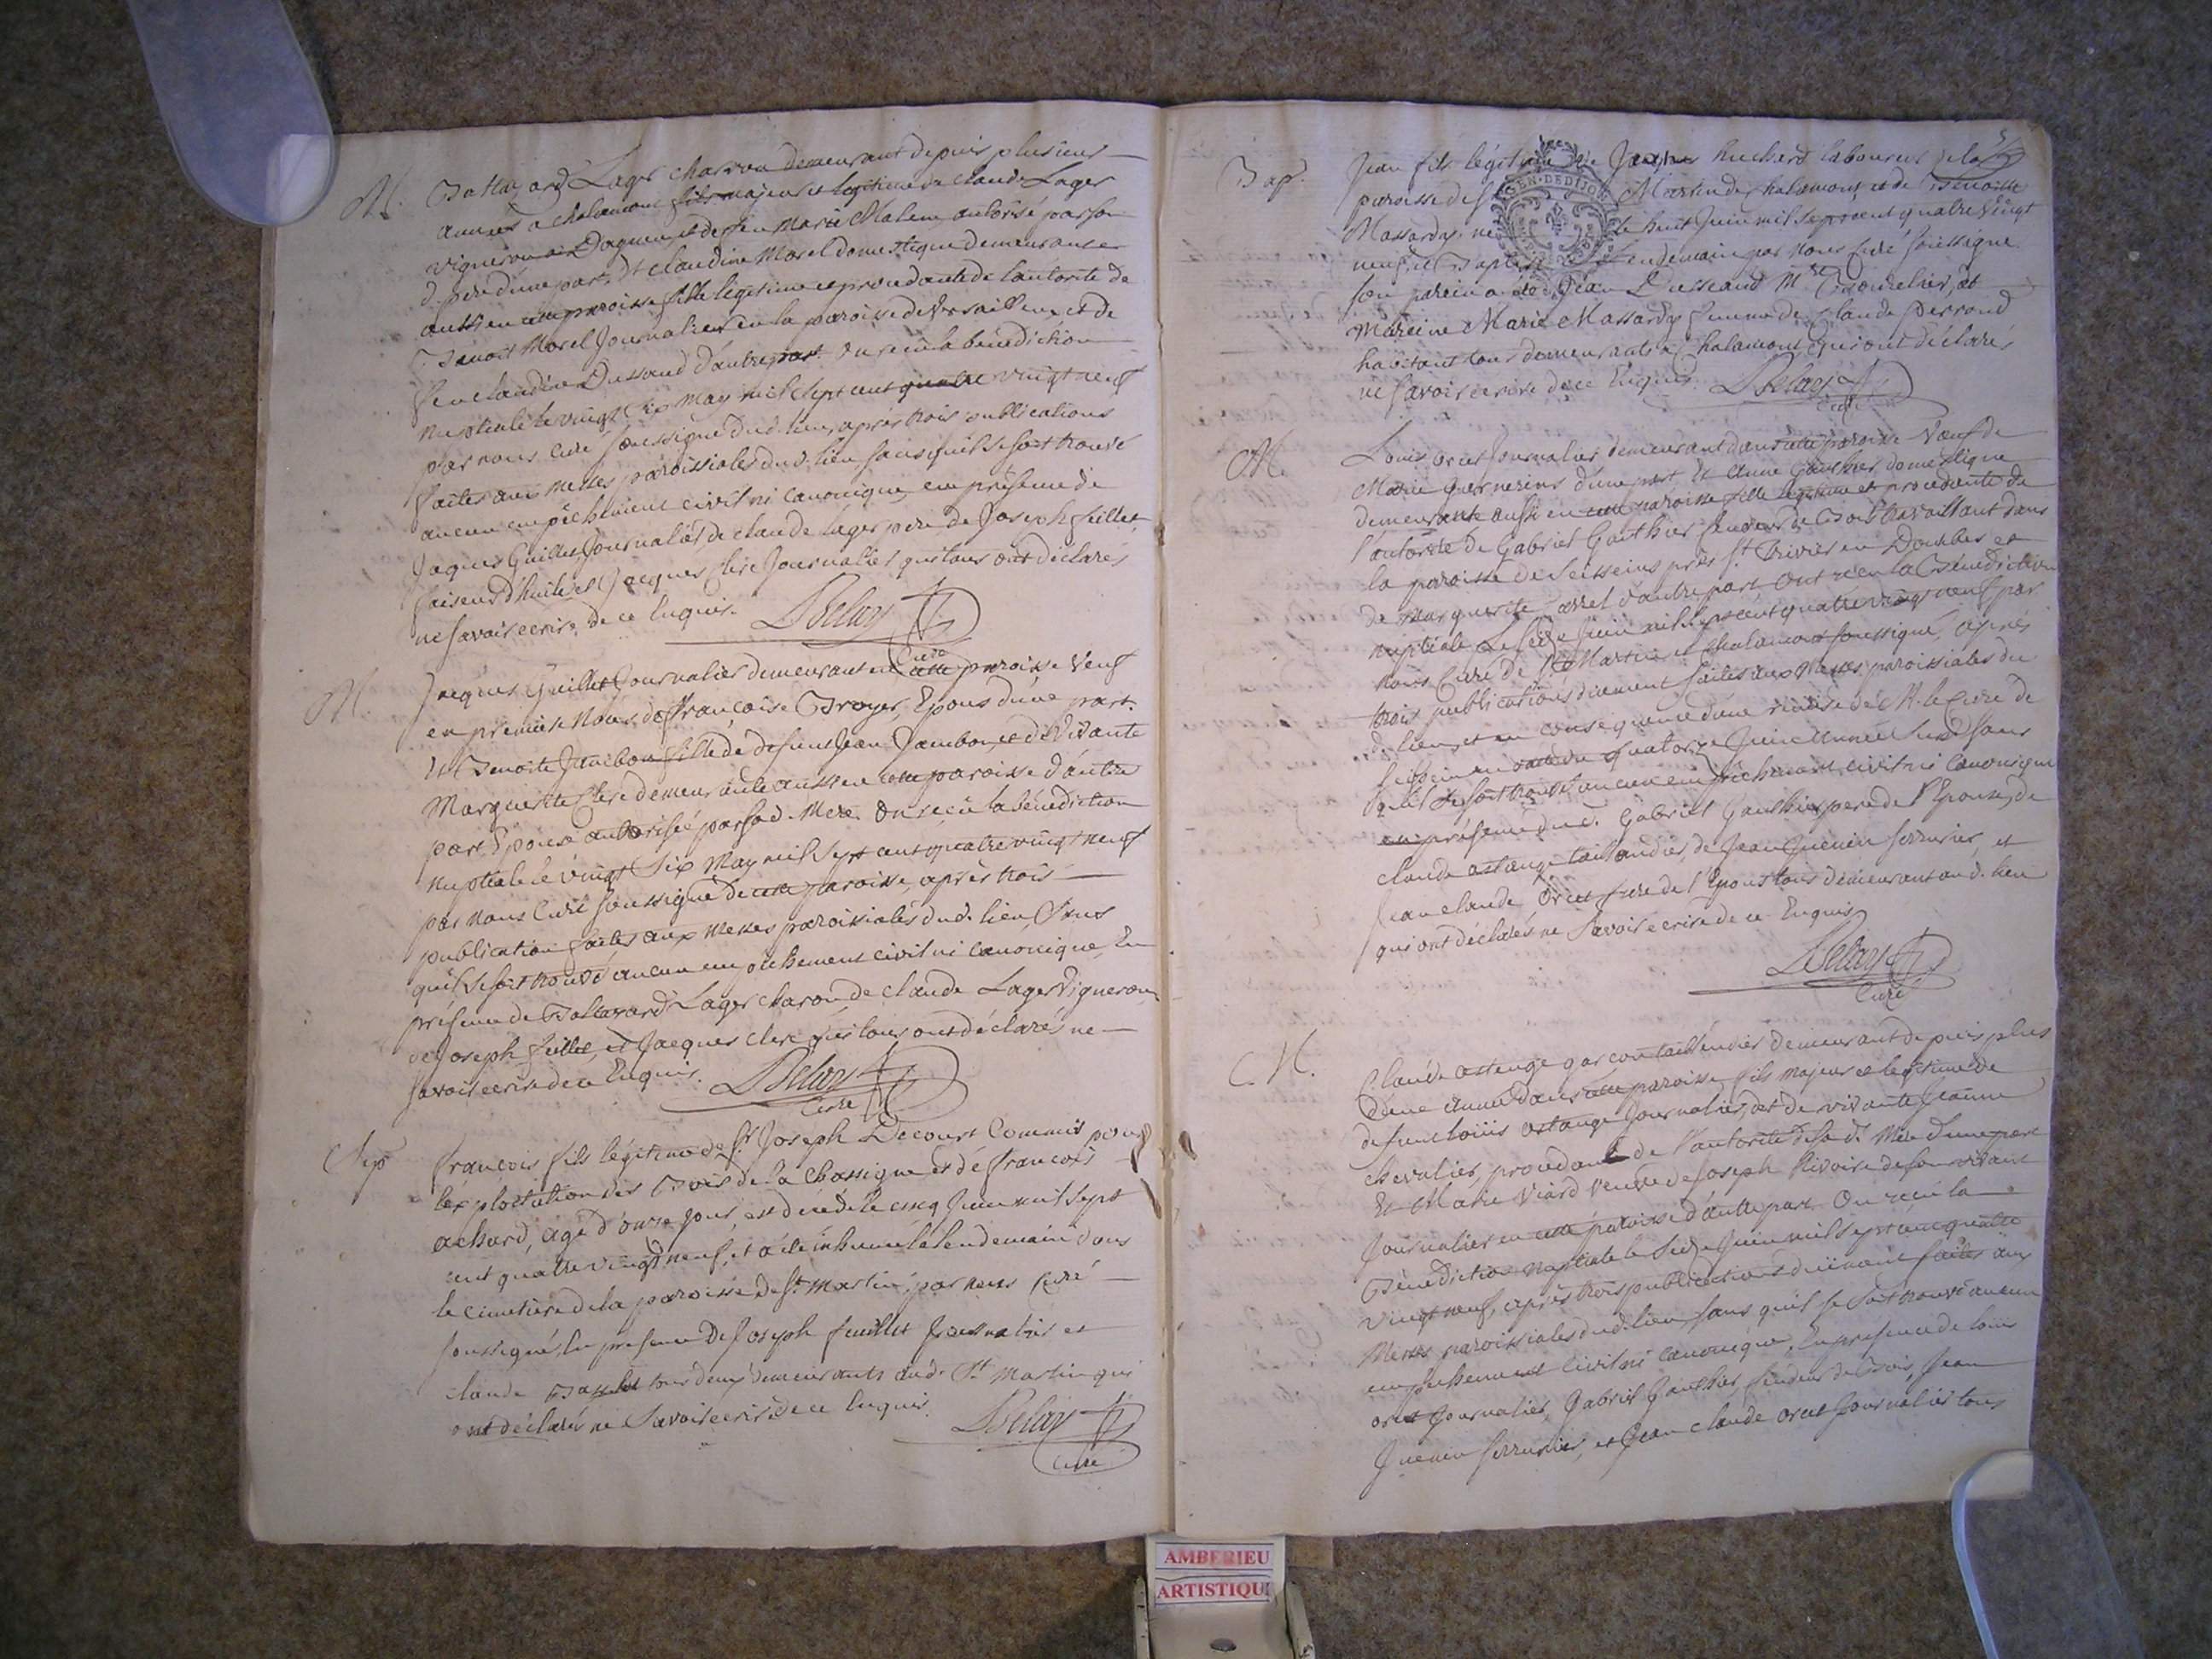 M.
Baltazard Lager charron demeurant depuis plusieurs
années a chalamont fils majeur et legitime de claude Lager
vigneron a Dagneu, et de feu Marie Malem, autorisé par son
d. pere d'une part, Et claudine Morel domestique demeurante
aussi en cette paroisse fille legitime et procedante de l'autorité de
Benoit Morel Journalier en la paroisse de Versailleux et de
feue claudine Dussaud d'autre part. On recu la benediction
nuptiale le vingt six may mil sept cent quatre vingt neuf
par nous curé soussigné dud. lieu, après trois publications
faites aux messes paroissiales dud. lieu sans qu'il se soit trouvé
aucun empêchement civil ni canonique, en présence de
Jaques Guillet Journalier, de claude Lager pere, de Joseph feillet
faiseur d'huile et Jacques Clerc Journalier qui tous ont déclarés
ne savoir ecrire de ce Enquis. LBelay
Curé
M.
Jacques Guillet Journalier demeurant en cette paroisse Veuf
en premiere Noces de françoise Broyer, Epoux d'une part.
Et Benoite Jambon fille de defunt Jean Jambon, et de Vivante
Marguerite Clerc demeurante aussi en cette paroisse d'autre
part Epouse autorisée par sad. Mere. On recu la bénédiction
nuptiale le vingt Six May mil sept cent quatre vingt neuf
par nous Curé soussigné de cette paroisse, après trois
publication faites aux messes paroissiales dud. lieu, sans
qu'il se soit trouvé aucun empêchement civil ni canonique, En
présence de Baltazard Lager charon, de claude Lager Vigneron,
de Joseph feillet, et Jacques clerc qui tous ont déclarés ne
savoir ecrire de ce Enquis. LBelay
Curé
Sep.
francois fils légitime de Sr. Joseph Decourt Commis pour
l'exploitation des Bois de la Chassigne et de francoise
achard, agé d'onze jour, est décédé le cinq Juin mil sept
cent quatre vingt neuf, et a été inhumé le lendemain dans
le cimetiere de la paroisse de St. Martin, par nous Curé
soussigné, En presence De Joseph feuillet Journalier et
claude tous deux demeurants aud. St. Martin qui
ont déclarés ne Savoir ecrire de ce Enquis. LBelay
Curé
5
Bap.
Jean fils légitime de Huchard laboureur de la
paroisse de St Martin de Chalamont, et de Benoite
Massardy, né le huit Juin mil sept cent quatre vingt
neuf, et Baptisé le lendemain par nous Curé soussigné.
son parein a été Jean Dusseaud Me. Bourrelier, et
Mareine Marie Massardy femme de Claude Perroud
habitant tous demeurants a Chalamont qui ont déclarés
ne savoir ecrire de ce Enquis. LBelay
Curé
M.
Louis orcet Journalier demeurant dans cette paroisse Veuf de
Marie d'une part. Et Anne Gauthier domestique
demeurante aussi en cette paroisse fille legitime et procedante de
l'autorité de Gabriel Gauthier fendeur de Bois travaillant dans
la paroisse de Seisseins près St. Trivier en Dombes et
de Marguerite d'autre part, Ont recu la Bénédiction
nuptiale Le Seize Juin mil sept cent quatre vingt neuf par
nous Curé de St. Martin et Chalamont soussigné, après
trois publications duement faites aux Messes paroissiales du
d. lieu, et en conséquence d'une remise de M. le Curé de
Seissein en date du quatorze Juin Année Susd. sans
qu'il se soit trouvé aucun empêchement civil ni canonique
en présence dud. Gabriel Gauthier pere de l'Epouse, de
claude astange taillandier, de Jean Juenin serrurier, et
Jean claude Orcet frere de l'Epoux tous demeurant aud. lieu
qui ont déclarés ne Savoir ecrire de ce Enquis
LBelay
Curé
M.
Claude astange garcon taillandier demeurant depuis plus
d'une année dans cette paroisse fils majeur et legitime de
defunt Louis astange Journalier, et de vivante Jeanne
chevalier, procedant de l'autorité de sa d. Mere d'une part
Et Marie Viard Veuve de Joseph Rivoire de son vivant
Journalier en cette paroisse d'autre part. On recu la
Bénédiction nuptiale le Seize Juin mil sept cent quatre
vingt neuf, après trois publications duement faites aux
Messes paroissiales dud. lieu sans qu'il se soit trouvé aucun
empêchement civil ni canonique, En presence de Louis
orcet Journalier, Gabriel Gauthier fendeur de Bois, Jean
Juenin serrurier, et Jean claude orcet Journalier tous
AMBERIEU
ARTISTIQUE